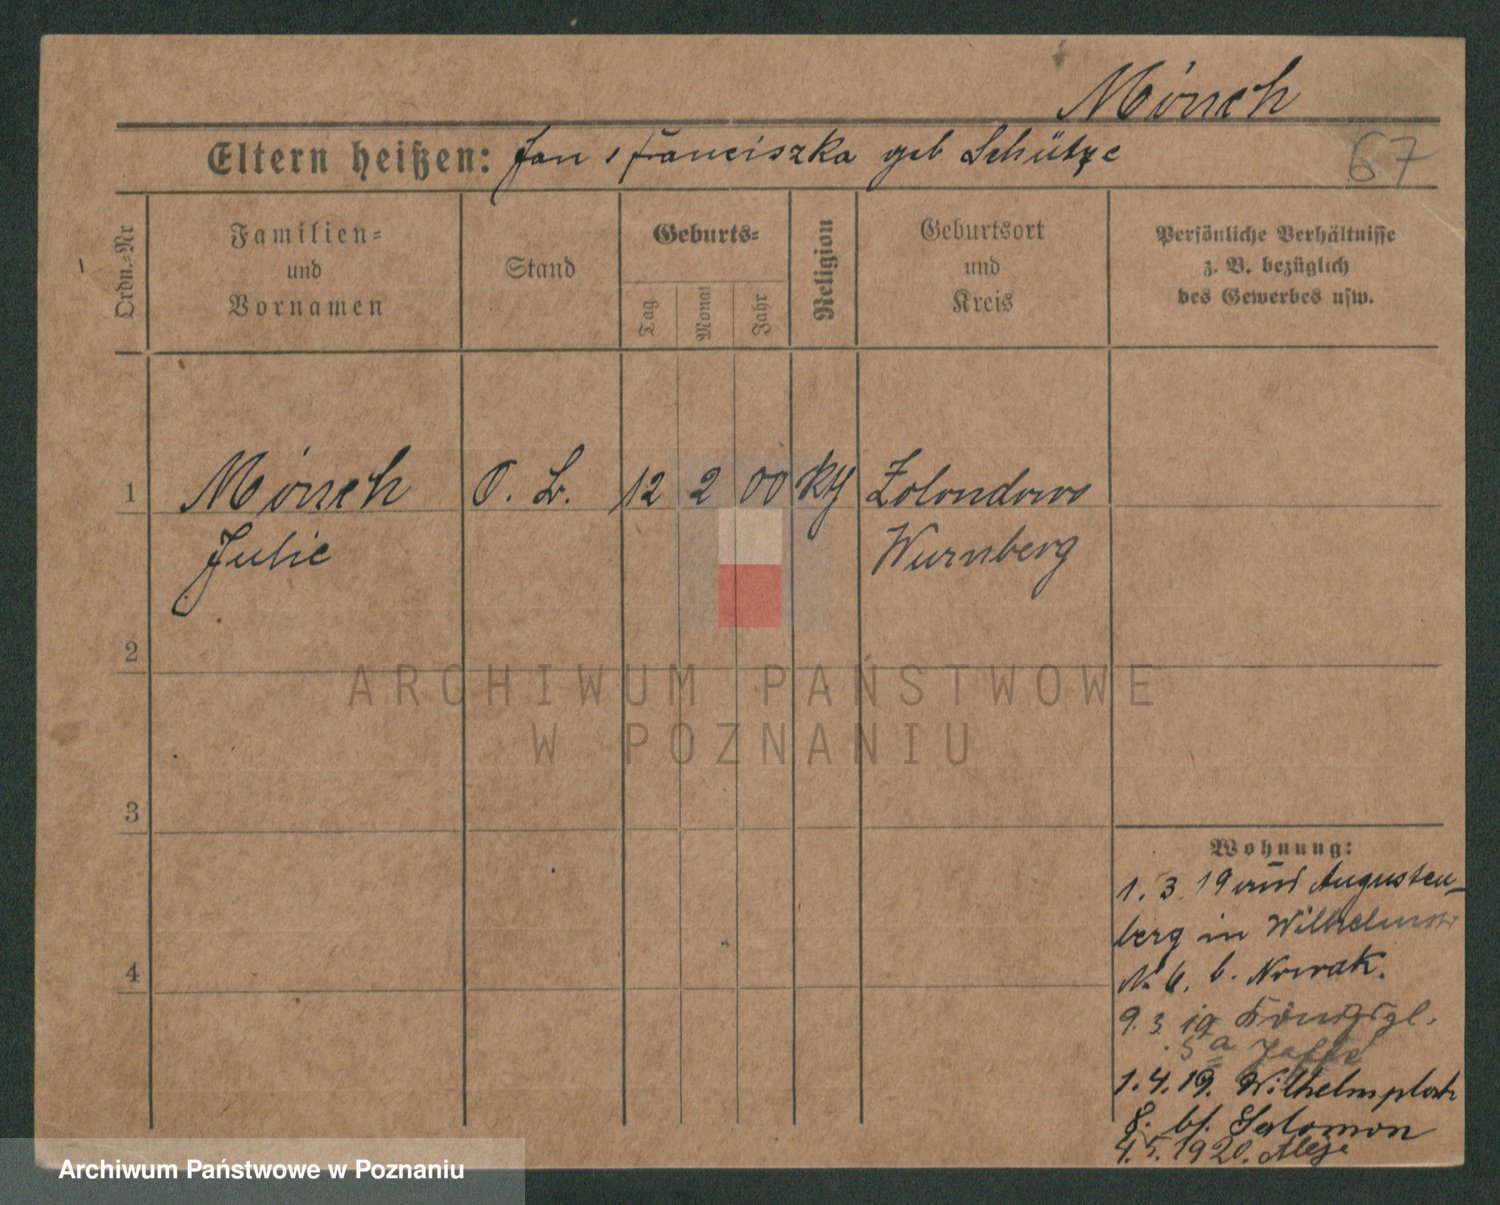 Mönch
67
Eltern heißen: Jan, Franciszka geb Schütze
Ordn.-Nr
Familien-
und
Vornamen
Stand
Geburts-
Tag
Monat
Jahr
Religion
Geburtsort
und
Kreis
Persönliche Verhältnisse
z. B. bezüglich
des Gewerbes usw.
1
Mönch
Julie
12 2 00
Zolondowo
Wurnberg
2
ARCHIWUM PAŃSTWOWE
W POZNANIU
3
4
Wohnung:
1. 3. 19 Augusten-
berg in Wilhelmstr
N. 6. b. Nowak.
9. 3. 19 Königspl.
5a
1. 4. 19. Wilhelmsplatz
8. bf. Salomon
4. 5. 1920. Aleje
Archiwum Państwowe w Poznaniu